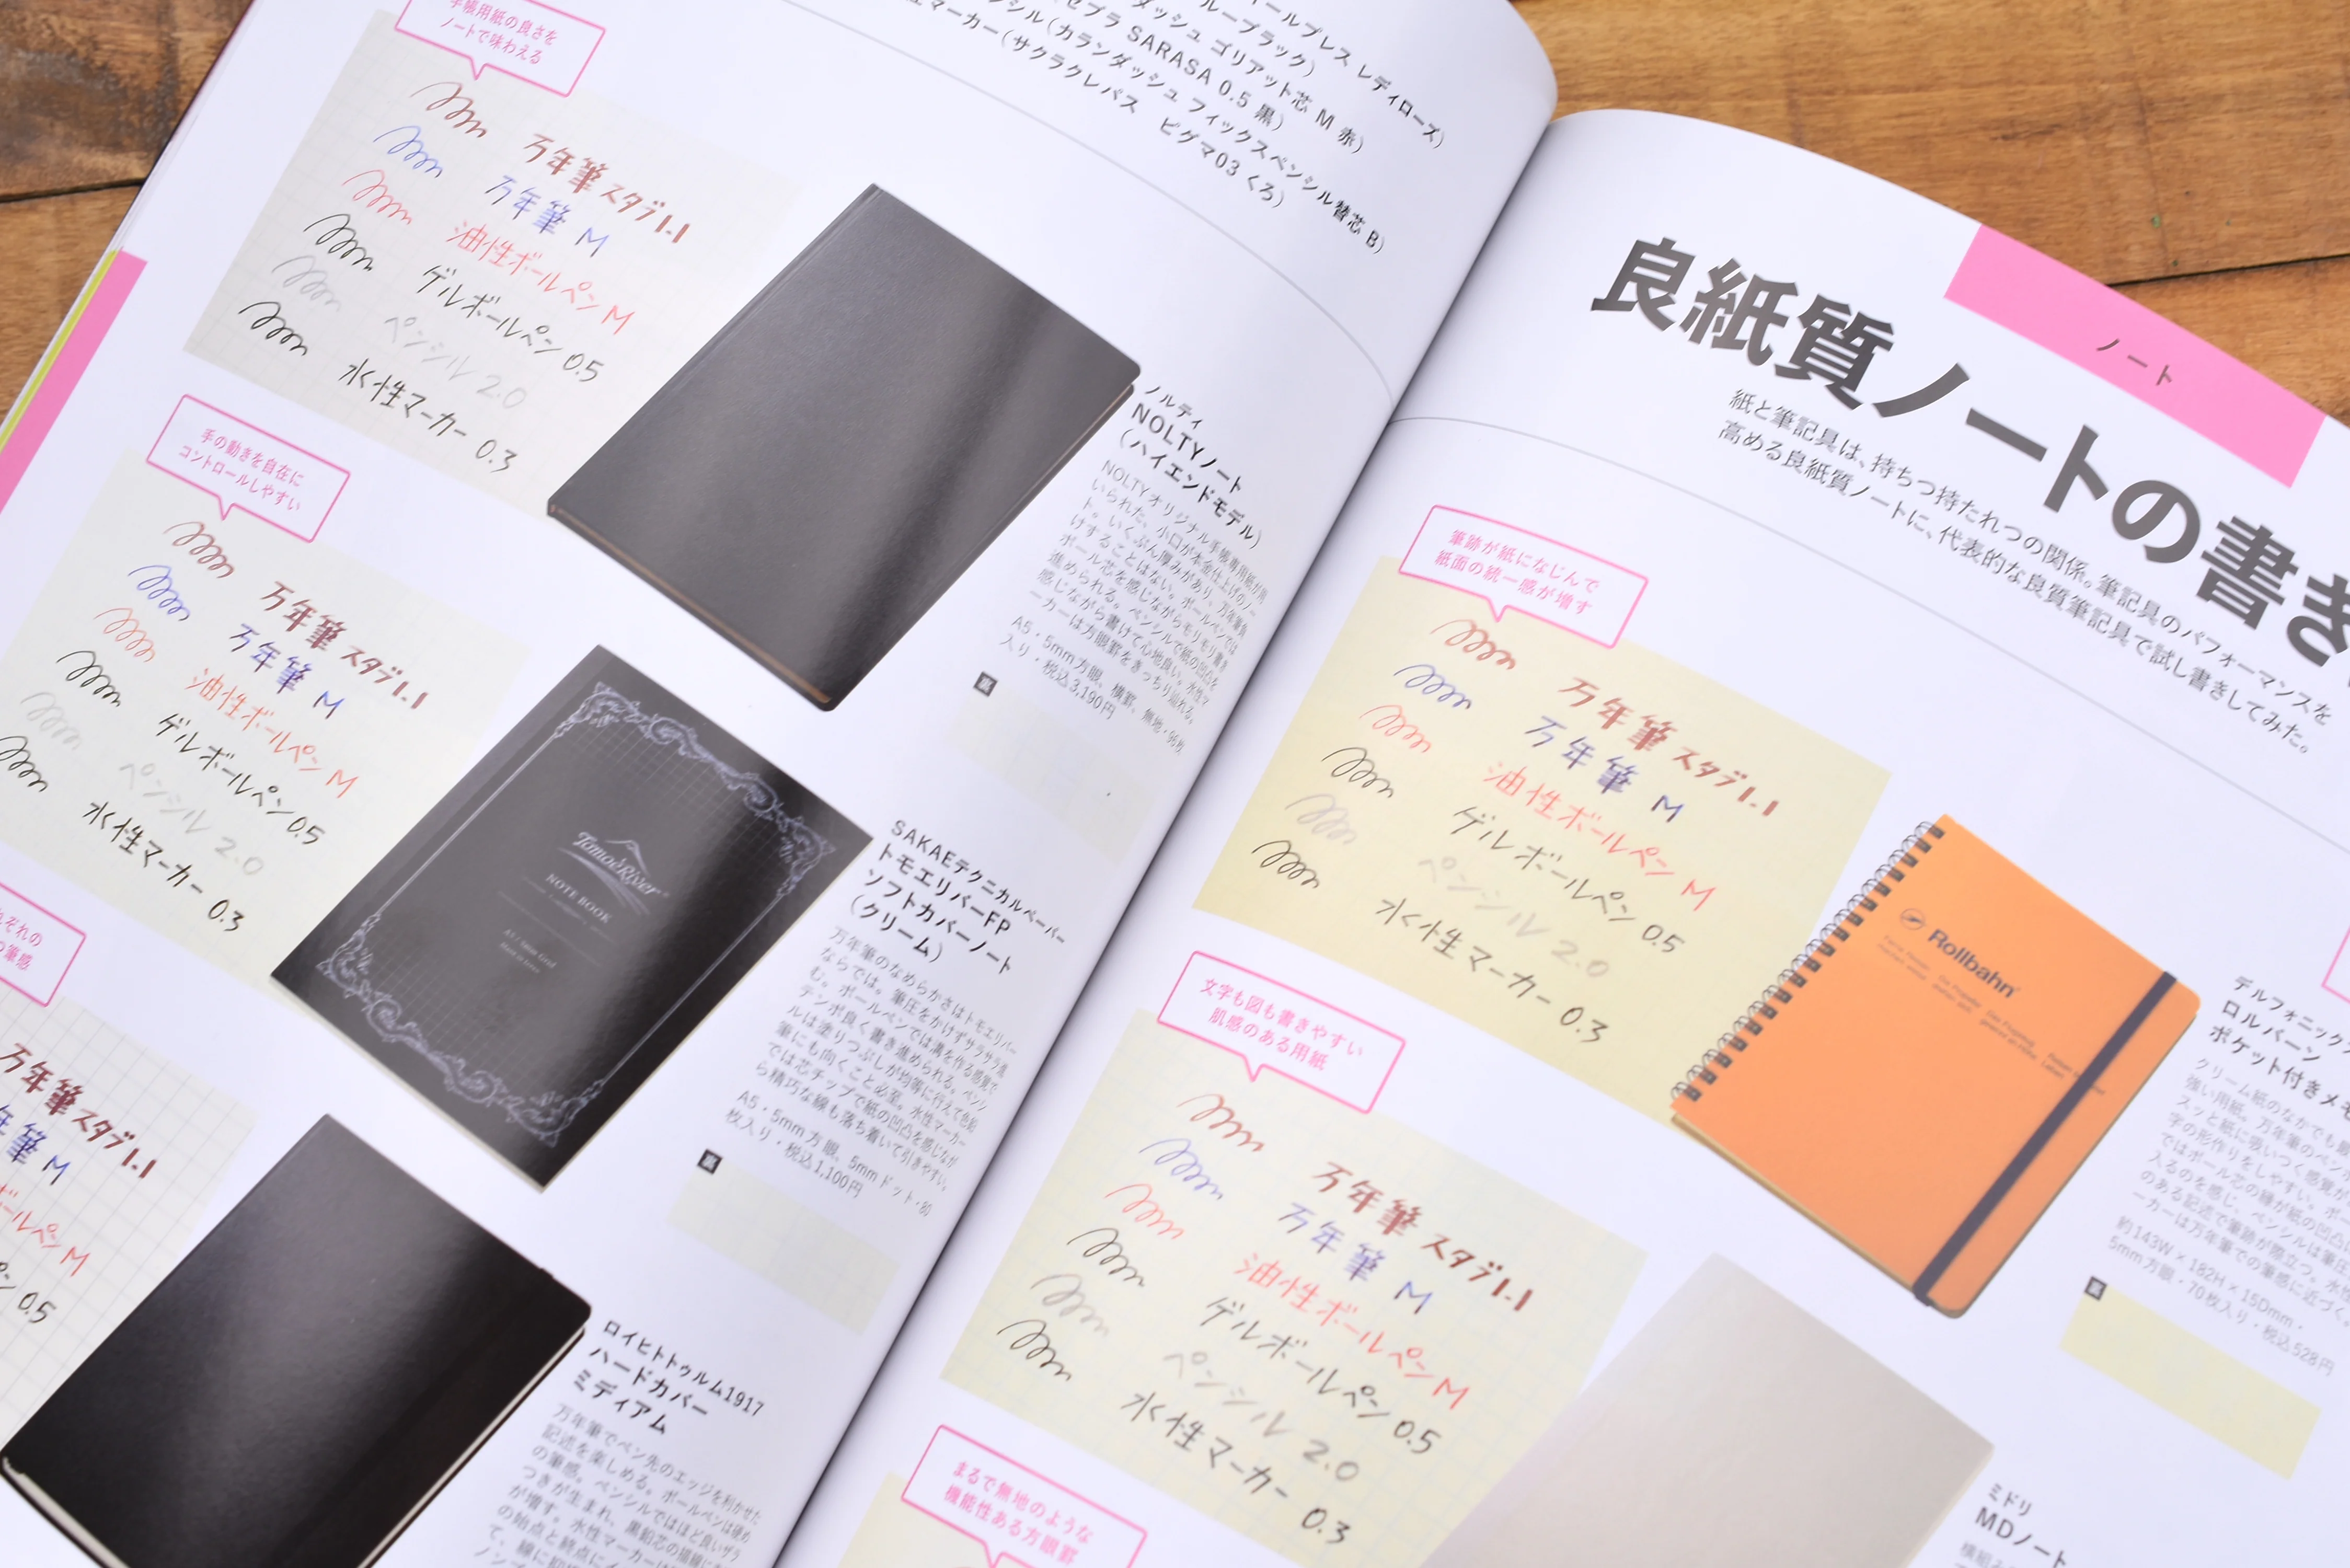 手帳用紙の良さを
ノートで味わえる
万年筆 スタブ1.1
万年筆 M
油性ボールペン M
ゲルボールペン 0.5
ペンシル 2.0
水性マーカー 0.3
ールプレス レディローズ)
ループブラック)
ダッシュ ゴリアット芯 M 赤)
ゼブラ SARASA 0.5 黒)
ンシル(カランダッシュ フィックスペンシル替芯 B)
マーカー(サクラクレパス ピグマ03 くろ)
ノルティ
NOLTYノート
(ハイエンドモデル)
NOLTYオリジナル手帳専用紙が用
いられた、小口が本金仕上げのノー
ト。いくぶん厚みがあり、万年筆負
けすることはない。ボールペンでは
ボール芯を感じながらモリモリ書き
進められる。ペンシルで紙の凹凸を
感じながら書けて心地良い。水性マ
ーカーは方眼罫をきっちり辿れる。
A5・5mm方眼、横罫、無地・96枚
入り・税込3,190円
裏
手の動きを自在に
コントロールしやすい
万年筆 スタブ1.1
万年筆 M
油性ボールペン M
ゲルボールペン 0.5
ペンシル 2.0
水性マーカー 0.3
Tomoe River
NOTE BOOK
SAKAEテクニカルペーパー
トモエリバーFP
ソフトカバーノート
(クリーム)
万年筆のなめらかさはトモエリバー
ならでは。筆圧をかけずサラサラ進
む。ボールペンでは溝を作る感覚で、
テンポ良く書き進められる。ペンシ
ルは塗りつぶしが均等に行えて色鉛
筆にも向くこと必至。水性マーカー
では芯チップで紙の凹凸を感じなが
ら精巧な線も落ち着いて引きやすい。
A5・5mm方眼、5mmドット・80
枚入り・税込1,100円
裏
ぞれの
筆感
万年筆 スタブ1.1
年筆 M
ボールペン M
ペン 0.5
ロイヒトトゥルム1917
ハードカバー
ミディアム
万年筆でペン先のエッジを利かせた
記述を楽しめる。ボールペンは硬め
の筆感。ペンシルではほど良いザラ
つきが生まれ、黒鉛芯の描線に
が増す。水性マーカー
の始点と終点に
ノート
良紙質ノートの書き
紙と筆記具は、持ちつ持たれつの関係。筆記具のパフォーマンスを
高める良紙質ノートに、代表的な良質筆記具で試し書きしてみた。
筆跡が紙になじんで
紙面の統一感が増す
万年筆 スタブ1.1
万年筆 M
油性ボールペン M
ゲルボールペン 0.5
ペンシル 2.0
水性マーカー 0.3
Rollbahn
デルフォニックス
ロルバーン
ポケット付きメモ
クリーム紙のなかでも
強い用紙。万年筆のペン
スッと紙に吸いつく感覚が
字の形作りをしやすい。ボー
ではボール芯の縁が紙の凹凸
入るのを感じ、ペンシルは筆圧
のある記述で筆跡が際立つ。水性
ーカーは万年筆での筆感に近づく
約143W×182H×15Dmm・
5mm方眼・70枚入り・税込528円
裏
文字も図も書きやすい
肌感のある用紙
万年筆 スタブ1.1
万年筆 M
油性ボールペン M
ゲルボールペン 0.5
ペンシル 2.0
水性マーカー 0.3
ミドリ
MDノート
まるで無地のような
機能性ある方眼罫